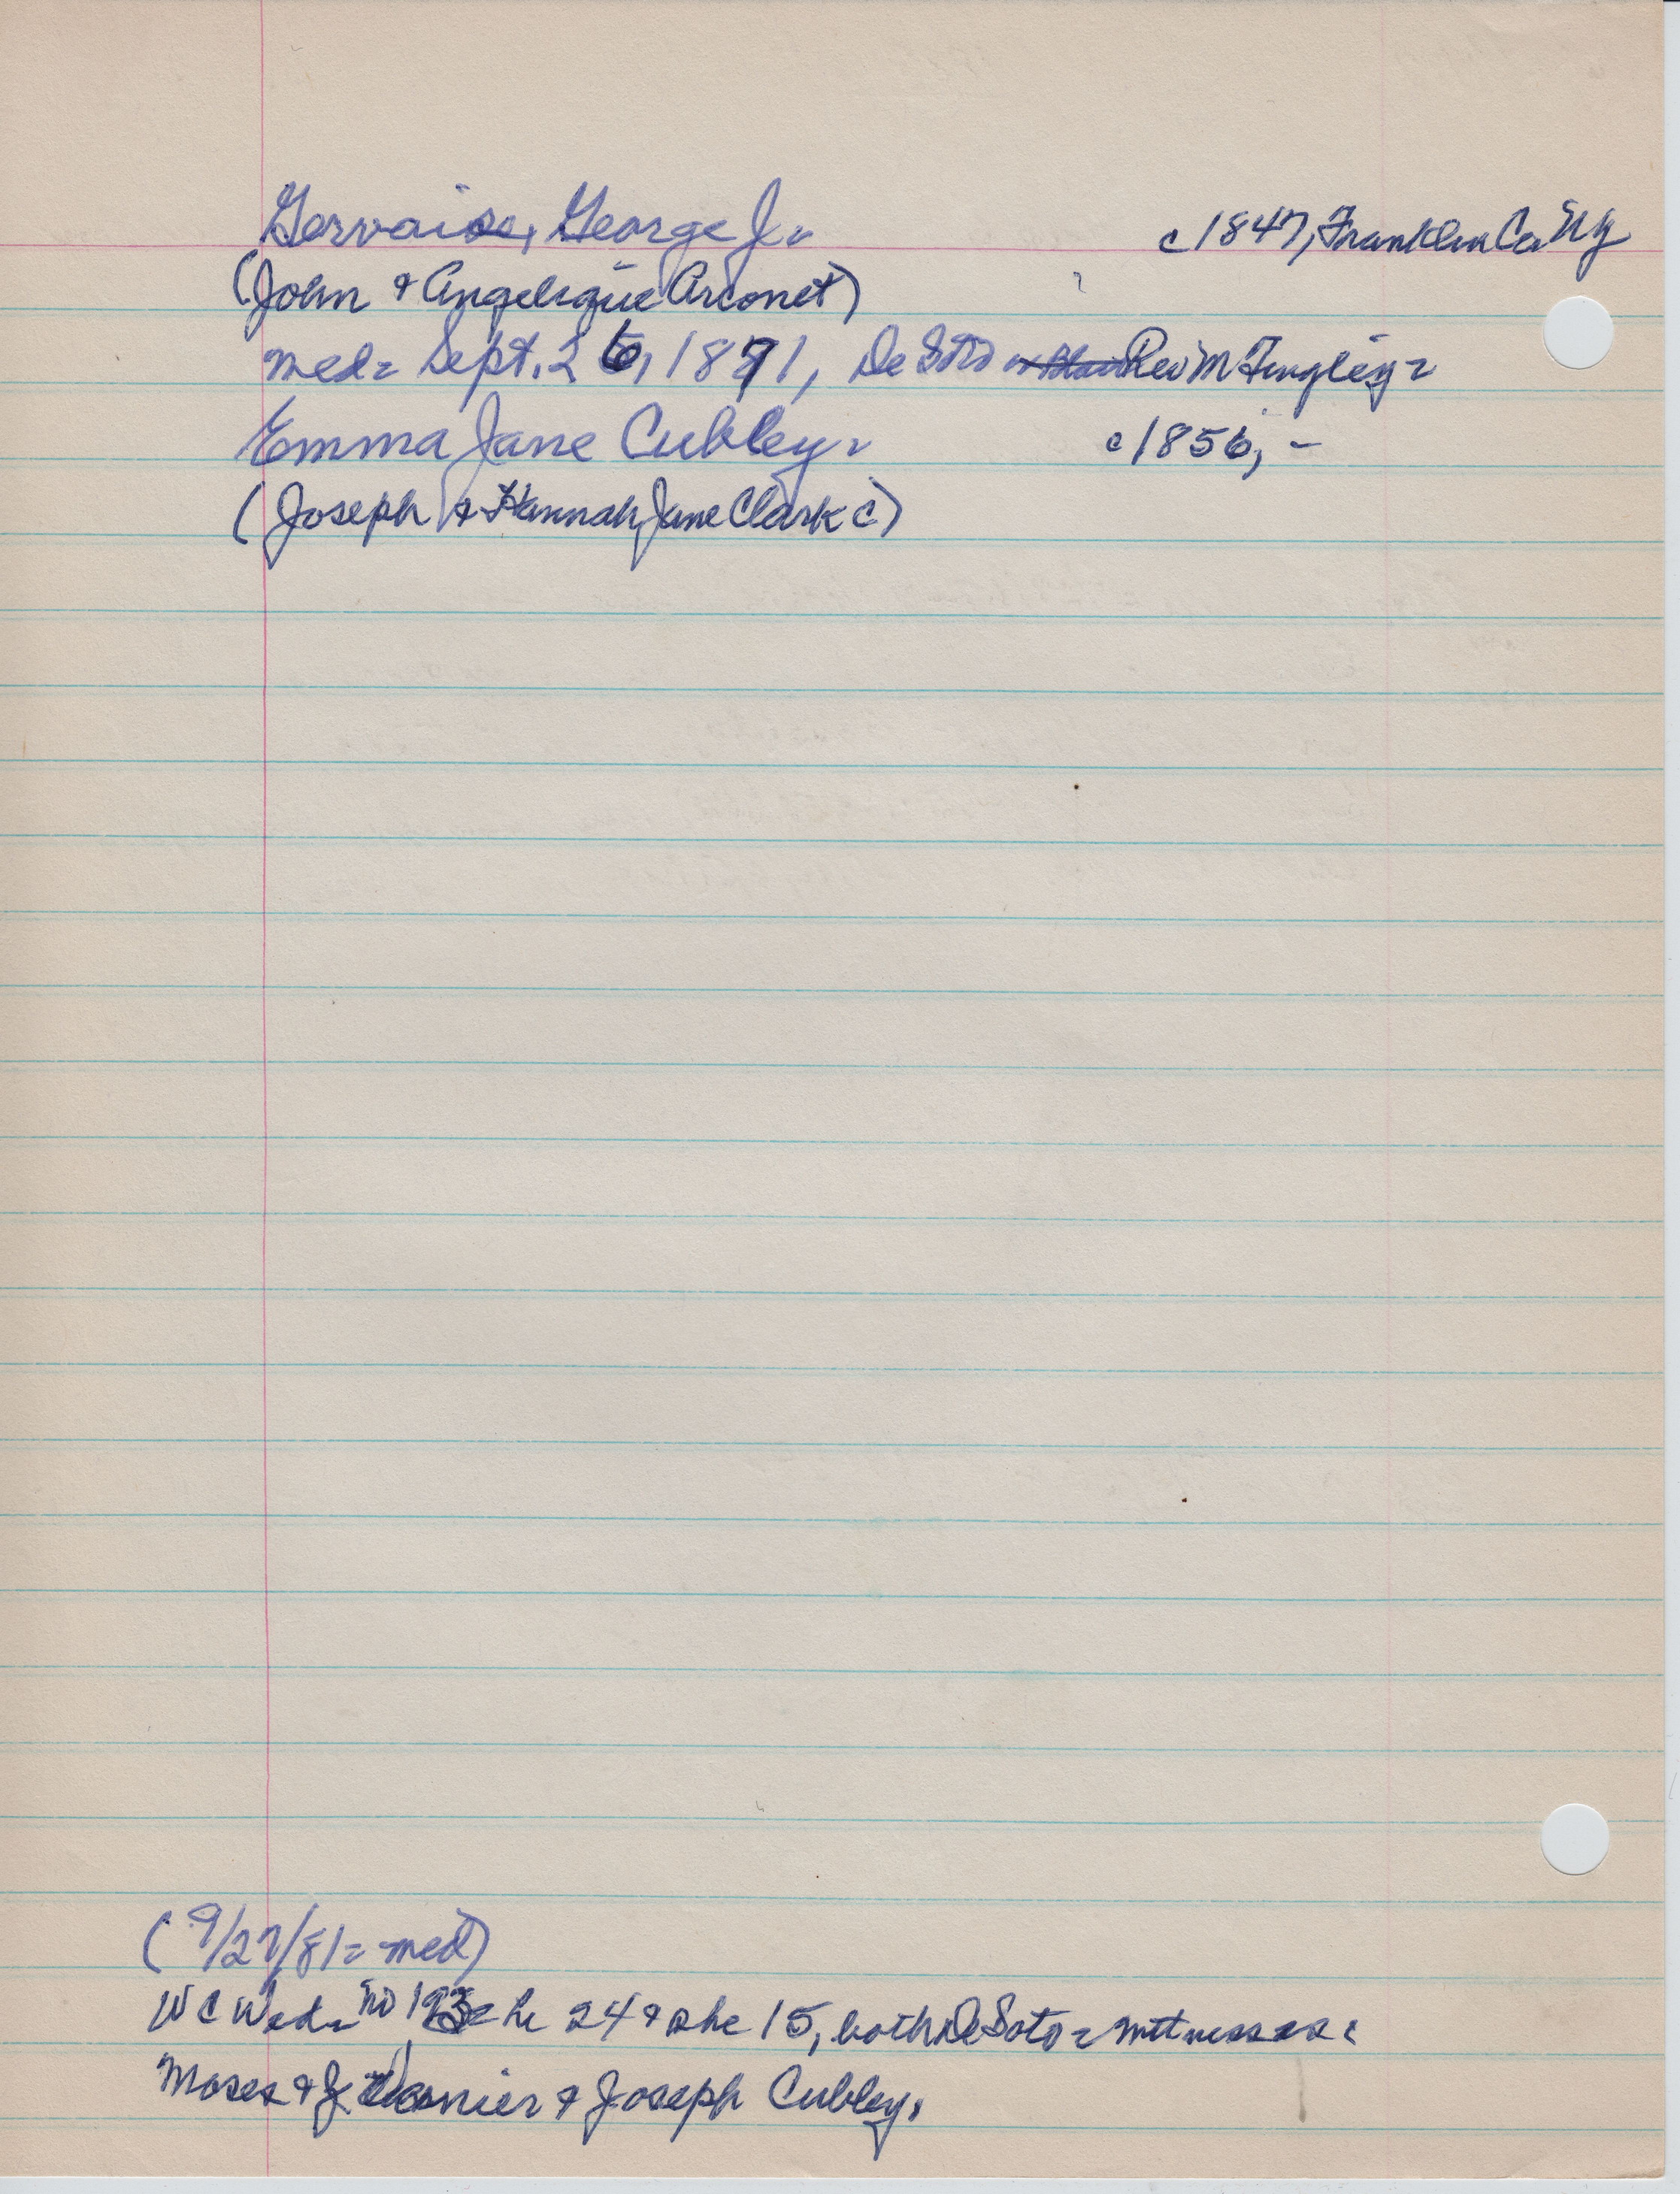 Gervaise, George J. c1847, Franklin Co NY
(John & Angelique Arconet)
med= Sept. 26, 1871, De Soto Rev M Tingley=
Emma Jane Cubley= c1856, -
(Joseph & Hannah Jane Clark C)
(9/27/81= med)
WC Wed= no 193= he 24 & she 15, both DeSoto = witnesses:
Moses & J & Joseph Cubley.